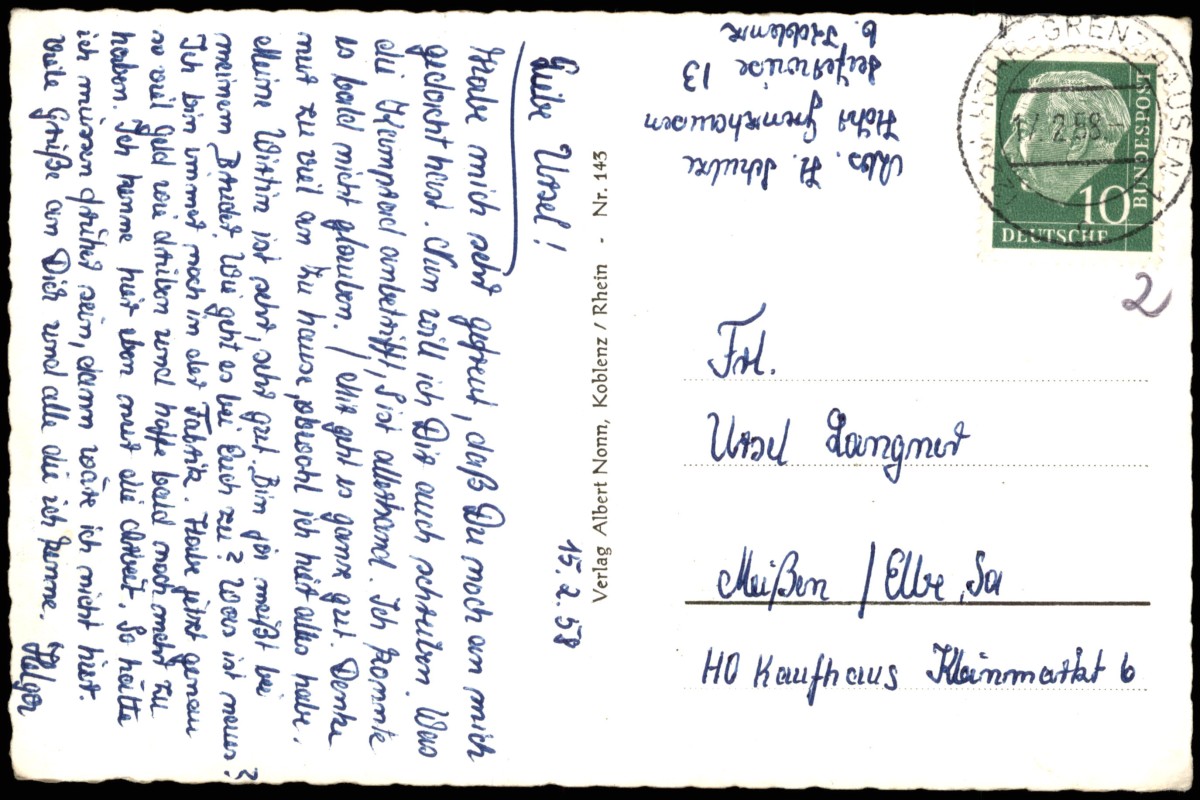 15.2.58
Liebe Ursel!
Habe mich sehr gefreut, daß Du noch an mich
gedacht hast. Nun will ich Dir auch schreiben. Was
die Heimpost anbetrifft, S ist allerhand. Ich konnte
es bald nicht glauben. / Mir geht es ganz gut. Denke
nur zu viel an zu hause, obwohl ich hier alles habe.
Meine Wirtin ist sehr, sehr gut. Bin ja meißt bei
meinem Bruder. Wie geht es bei Euch zu? Was ist neues?
Ich bin immer noch in der Fabrik. Habe jetzt genau
so viel Geld wie drüben und hoffe bald noch mehr zu
haben. Ich kenne hier eben nur die Arbeit. So hätte
ich müssen drüber sein, dann wäre ich nicht hier.
Viele Grüße an Dich und alle die ich kenne. Holger
Verlag Albert Nomm, Koblenz / Rhein - Nr. 143
Abs. H. Schulze
Höhr Grenzhausen
13
b. Koblenz
HÖHR-GRENZHAUSEN 1
2.58
10
DEUTSCHE
BUNDESPOST
2
Frl.
Ursel Langner
Meißen / Elbe, Sa
HO Kaufhaus Kleinmarkt 6